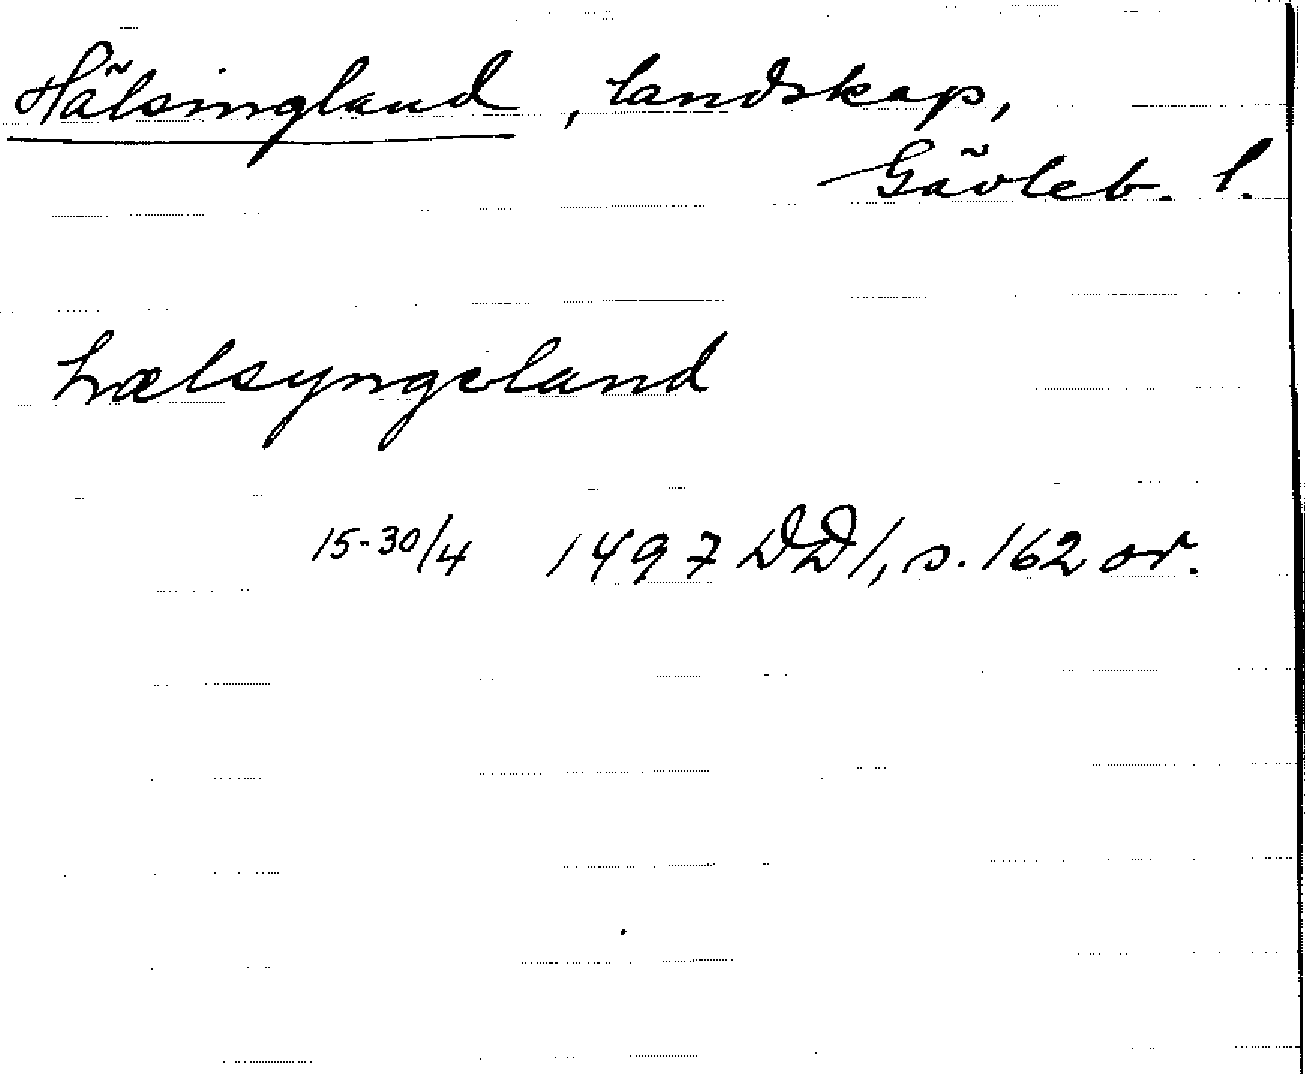 Hälsingland, landskap,
Gävleb. l.
hælsyngeland
15-30/4 1497 DD1, s. 162 or.